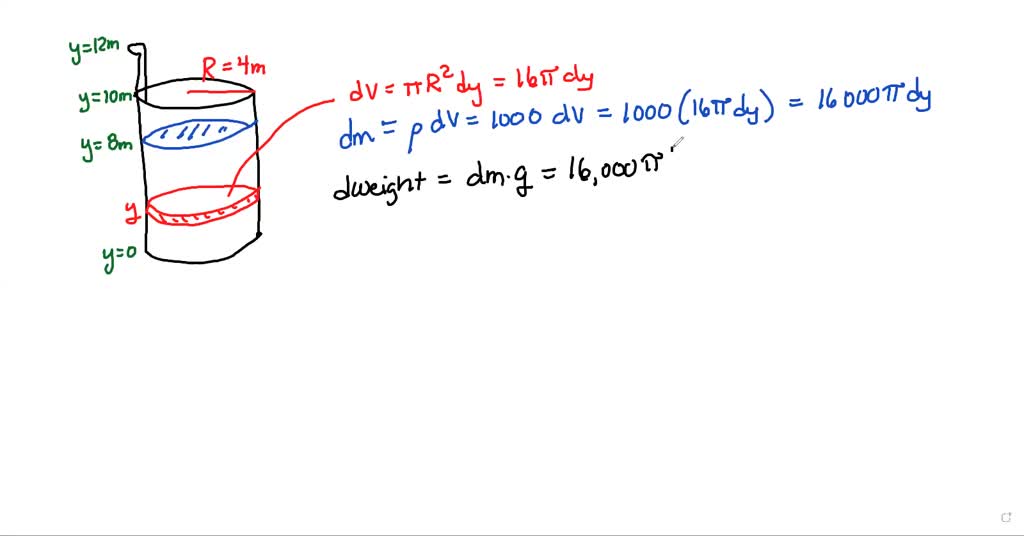 y=12m
R=4m
y=10m
y=8m
y
y=0
dV = πR² dy = 16π dy
dm = ρ dV = 1000 dV = 1000 (16π dy) = 16000π dy
dweight = dm·g = 16,000π